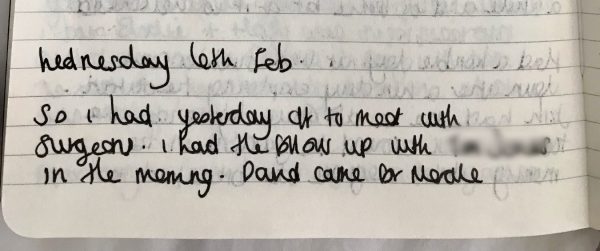 Wednesday 6th Feb.
So I had yesterday off to meet with
surgeons. I had the follow up with
in the morning. David came for Morale